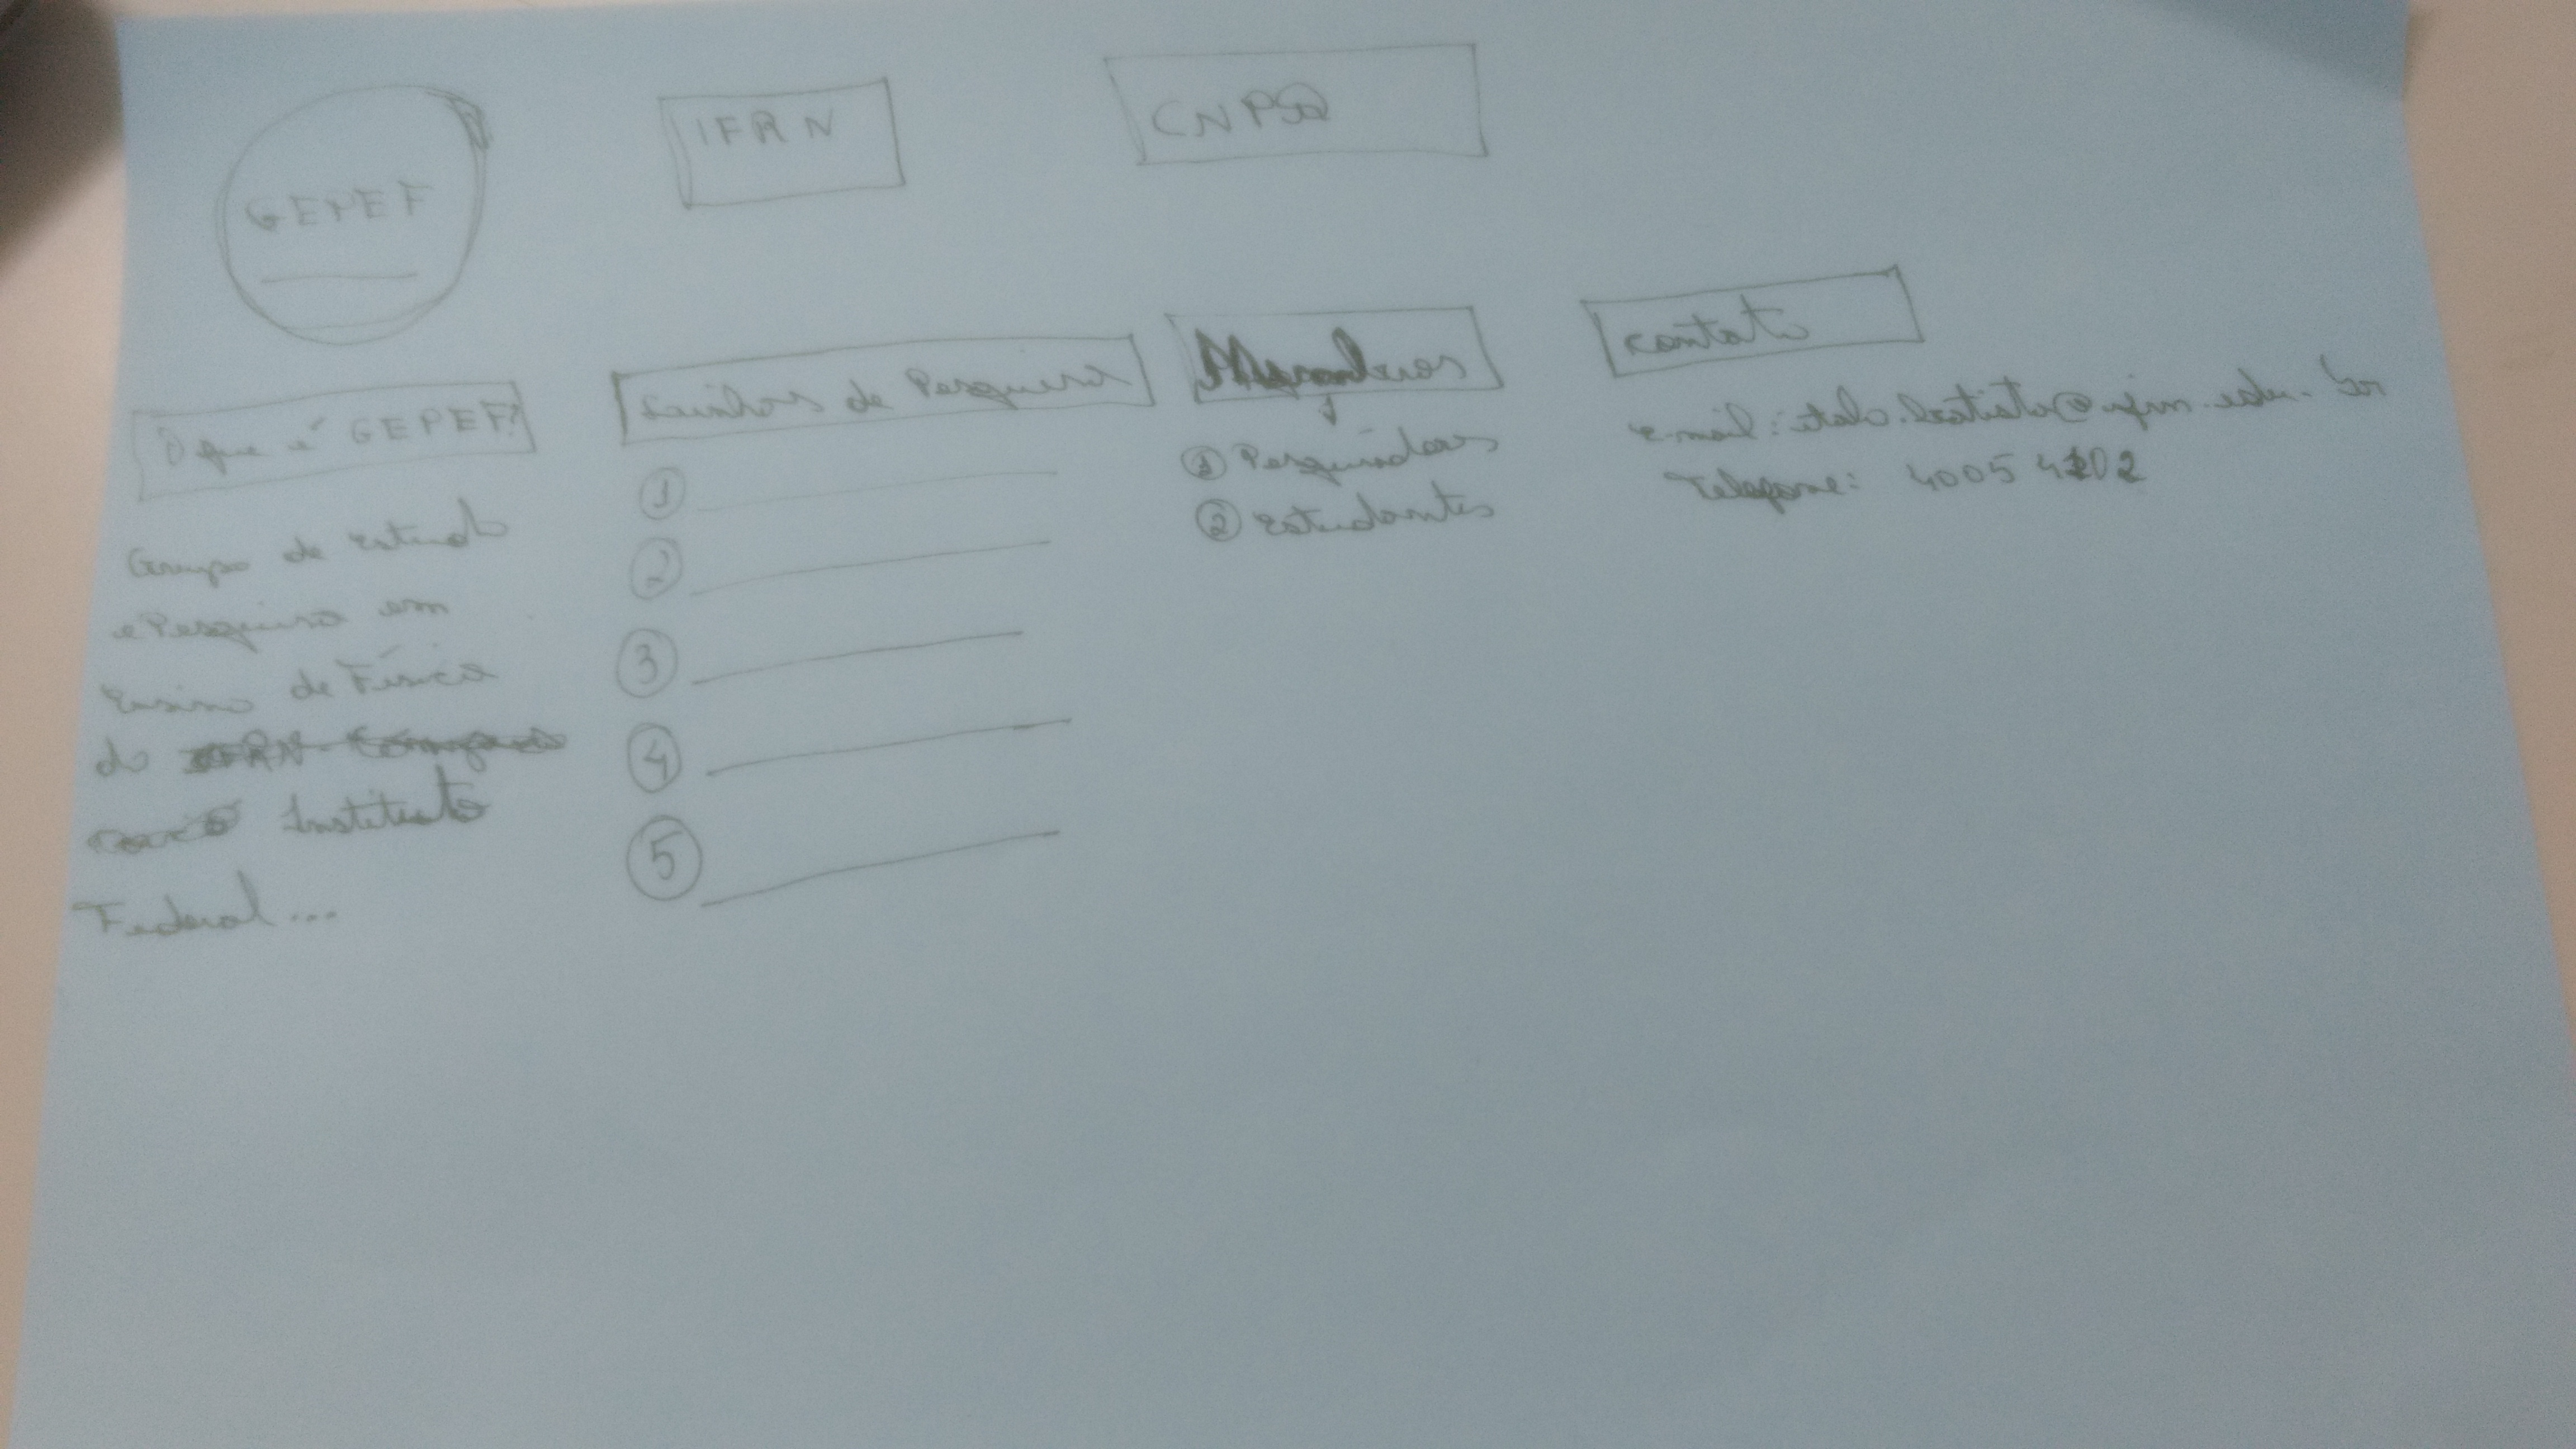 GEPEF
IFRN
CNPQ
O que é GEPEF?
Grupo de Estudo
e Pesquisa em
Ensino de Física
do
Instituto
Federal...
Linhas de Pesquisa
1
2
3
4
5
Membros
1 Pesquisadores
2 Estudantes
Contato
e-mail: italo.batista@ifrn.edu.br
Telefone: 4005 4102